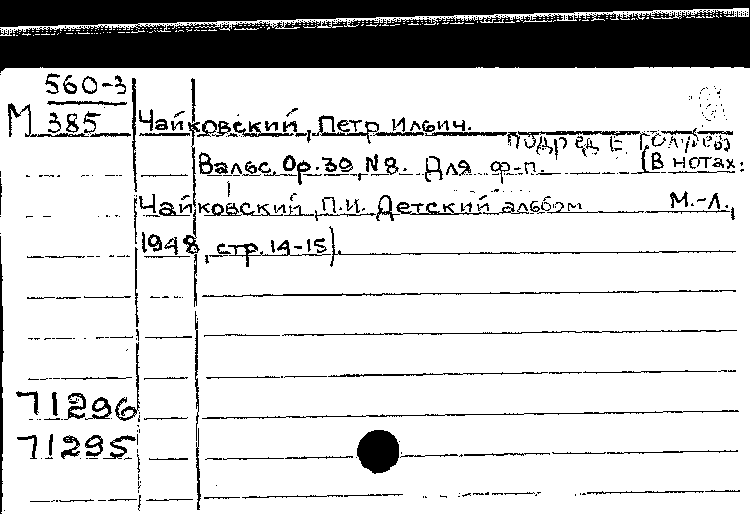 560-3
М 385 Чайковский, Петр Ильич.
под ред. Е. Голубев
Вальс. Op. 39, N 8. Для ф-п. (В нотах:
Чайковский, П.И. Детский альбом М.-Л.,
1948, стр. 14-15).
71296
71295